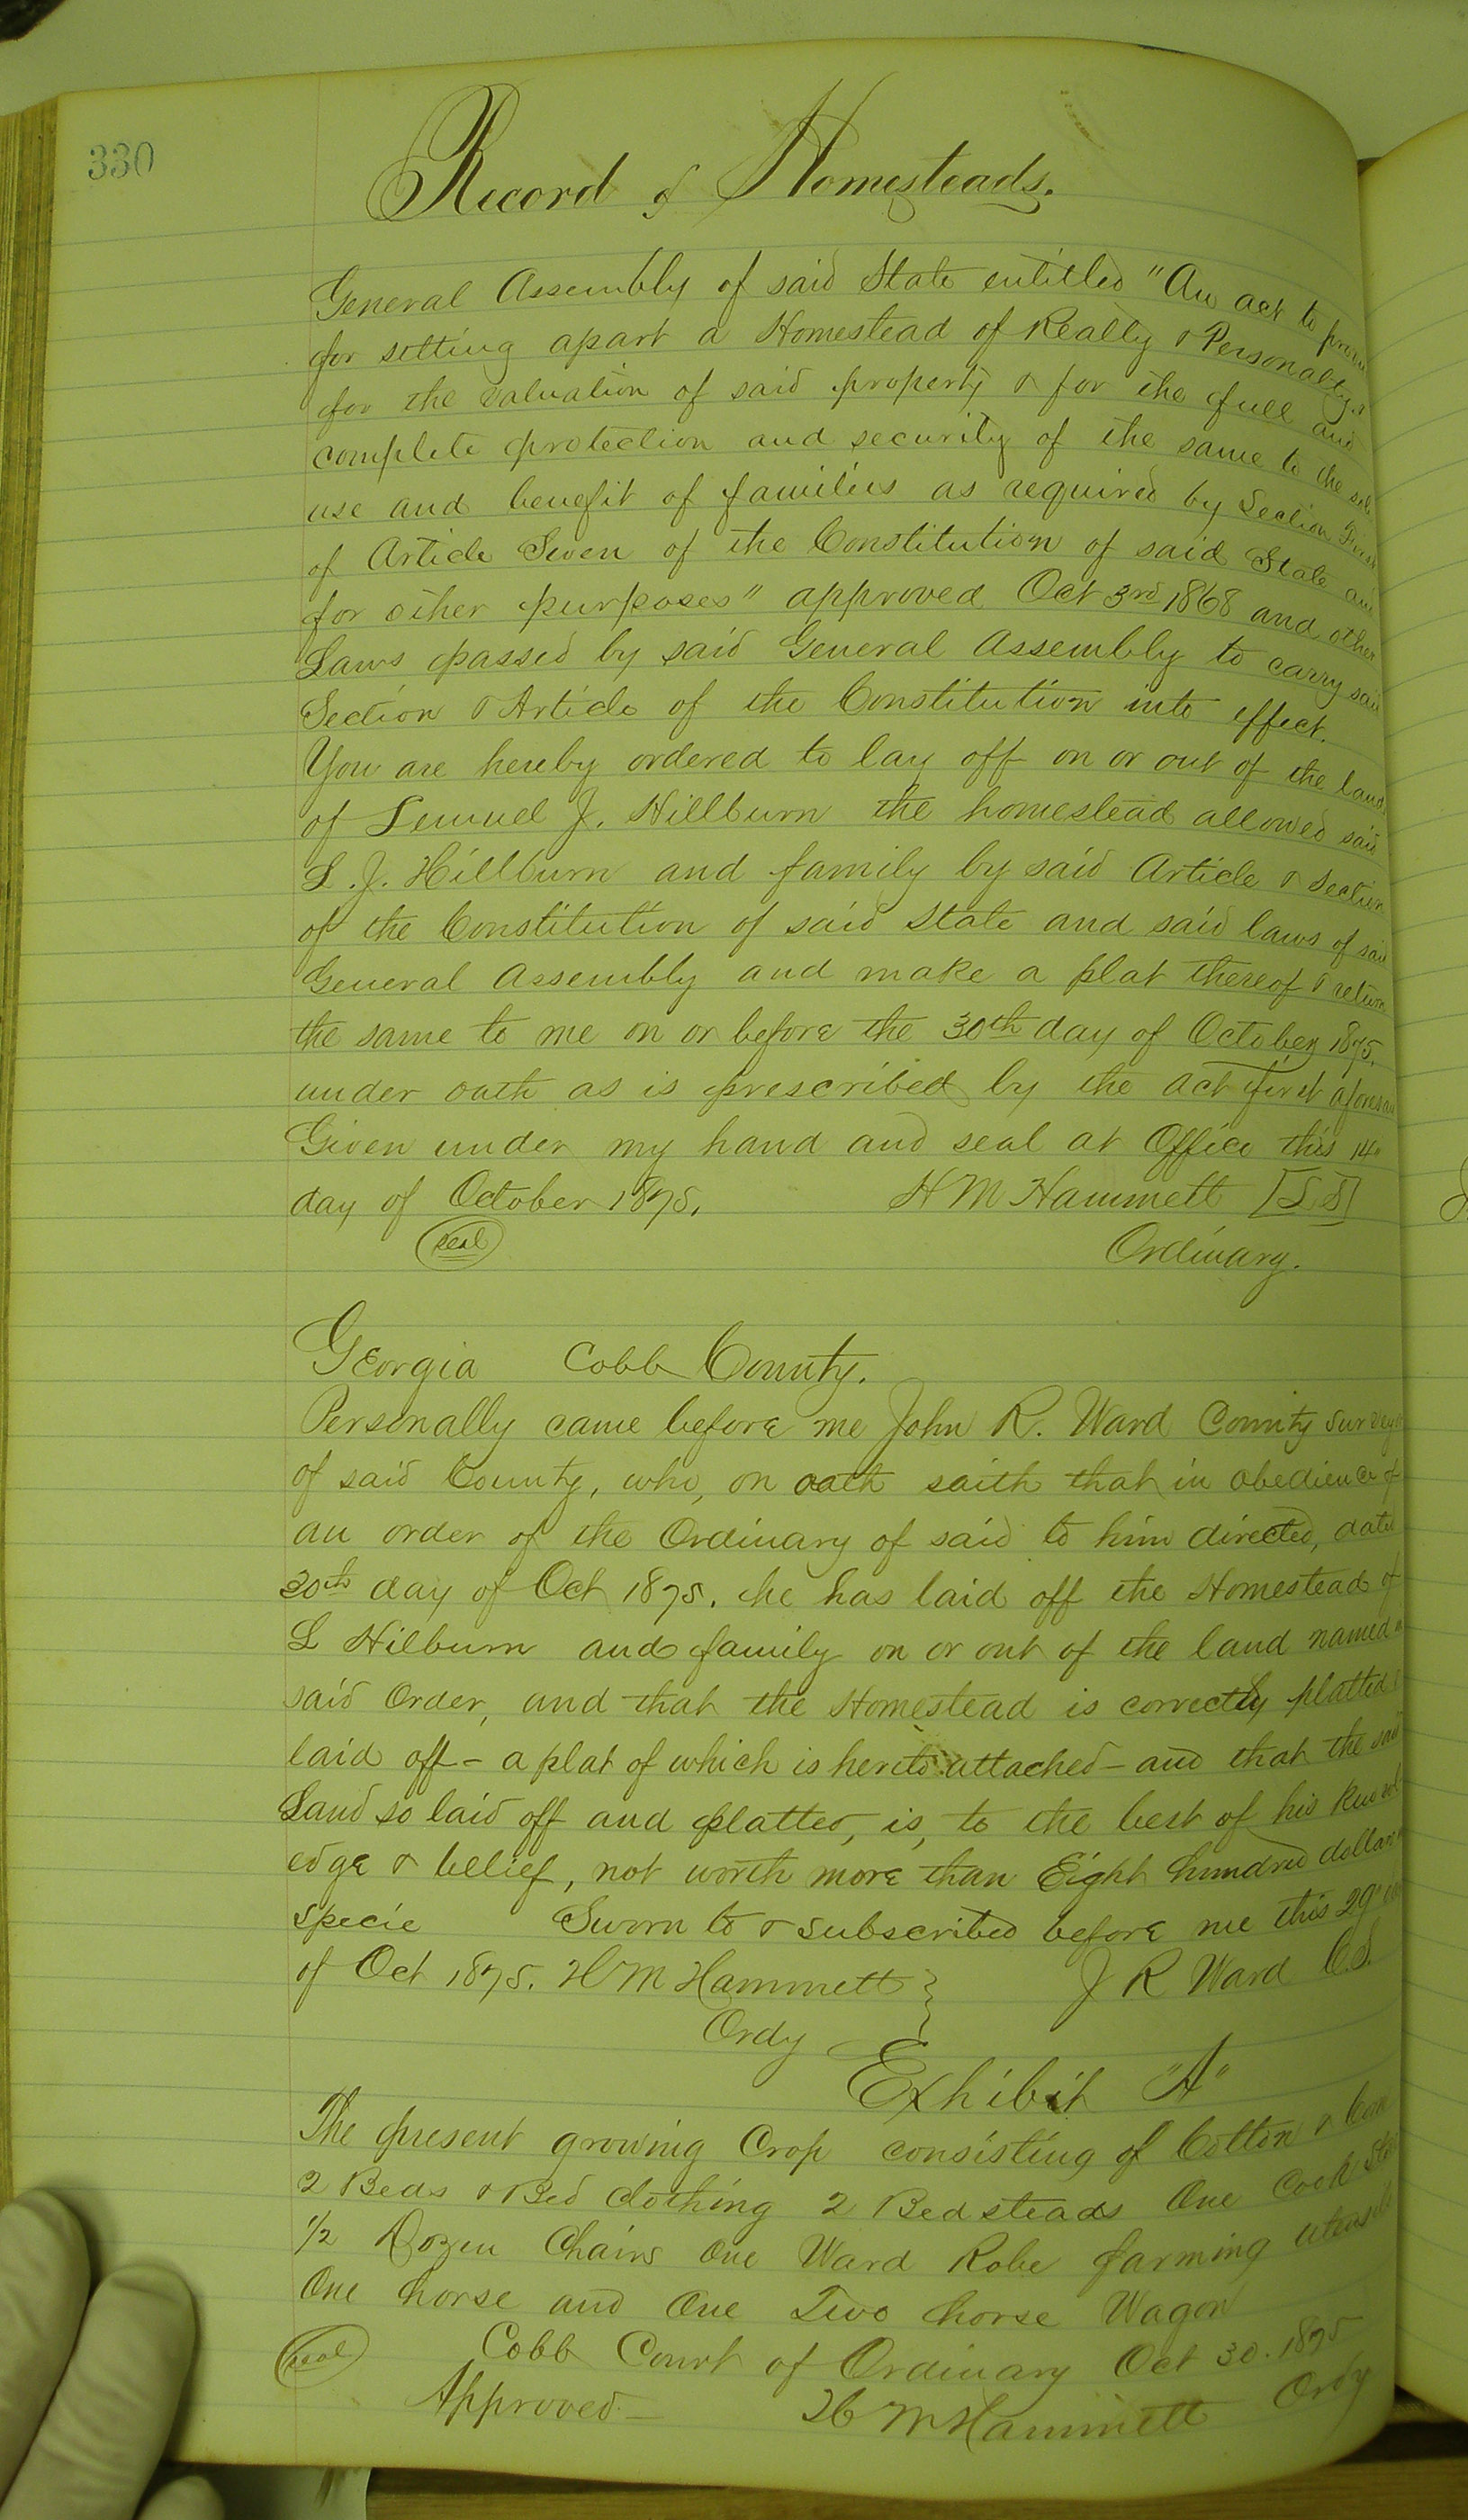 330
Record of Homesteads.
General Assembly of said State entitled "An act to
for setting apart a Homestead of Realty & Personalty &
for the valuation of said property & for the full and
complete protection and security of the same to the sole
use and benefit of families as required by Section First
of Article Seven of the Constitution of said State and
for other purposes" approved Oct 3rd 1868 and other
Laws passed by said General Assembly to carry said
Section & Article of the Constitution into effect.
You are hereby ordered to lay off on or out of the land
of Lemuel J. Hillburn the homestead allowed said
L. J. Hillburn and family by said Article & Section
of the Constitution of said State and said laws of said
General Assembly and make a plat thereof & return
the same to me on or before the 30th day of October 1875.
under oath as is prescribed by the act first
Given under my hand and seal at Office this 14"
day of October 1875. H M Hammett [L S]
seal Ordinary.
Georgia Cobb County.
Personally came before me John R. Ward County
of said County, who, on oath saith that in obedience of
an order of the Ordinary of said to him directed,
30th day of Oct 1875. he has laid off the Homestead of
L Hilburn and family on or out of the land named
said Order, and that the Homestead is correctly platted &
laid off – a plat of which is hereto attached – and that the said
Land so laid off and platted, is, to the best of his knowl
edge & belief, not worth more than Eight hundred dollars
specie Sworn to & subscribed before me this 29"
of Oct 1875. H M Hammett } J R Ward C.S.
Ordy
Exhibit "A"
The present growing Crop consisting of Cotton &
2 Beds & Bed clothing 2 Bedsteads One Cook
1/2 Dozen Chairs One Ward Robe farming utensils
One horse and One Two horse Wagon
seal Cobb Court of Ordinary Oct 30. 1875
Approved – H M Hammett Ordy